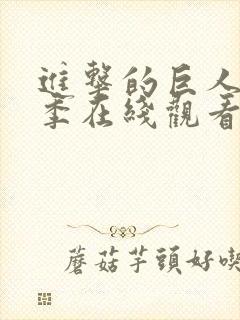 進擊的巨人
季在綫觀看
蘑菇芋頭好喫